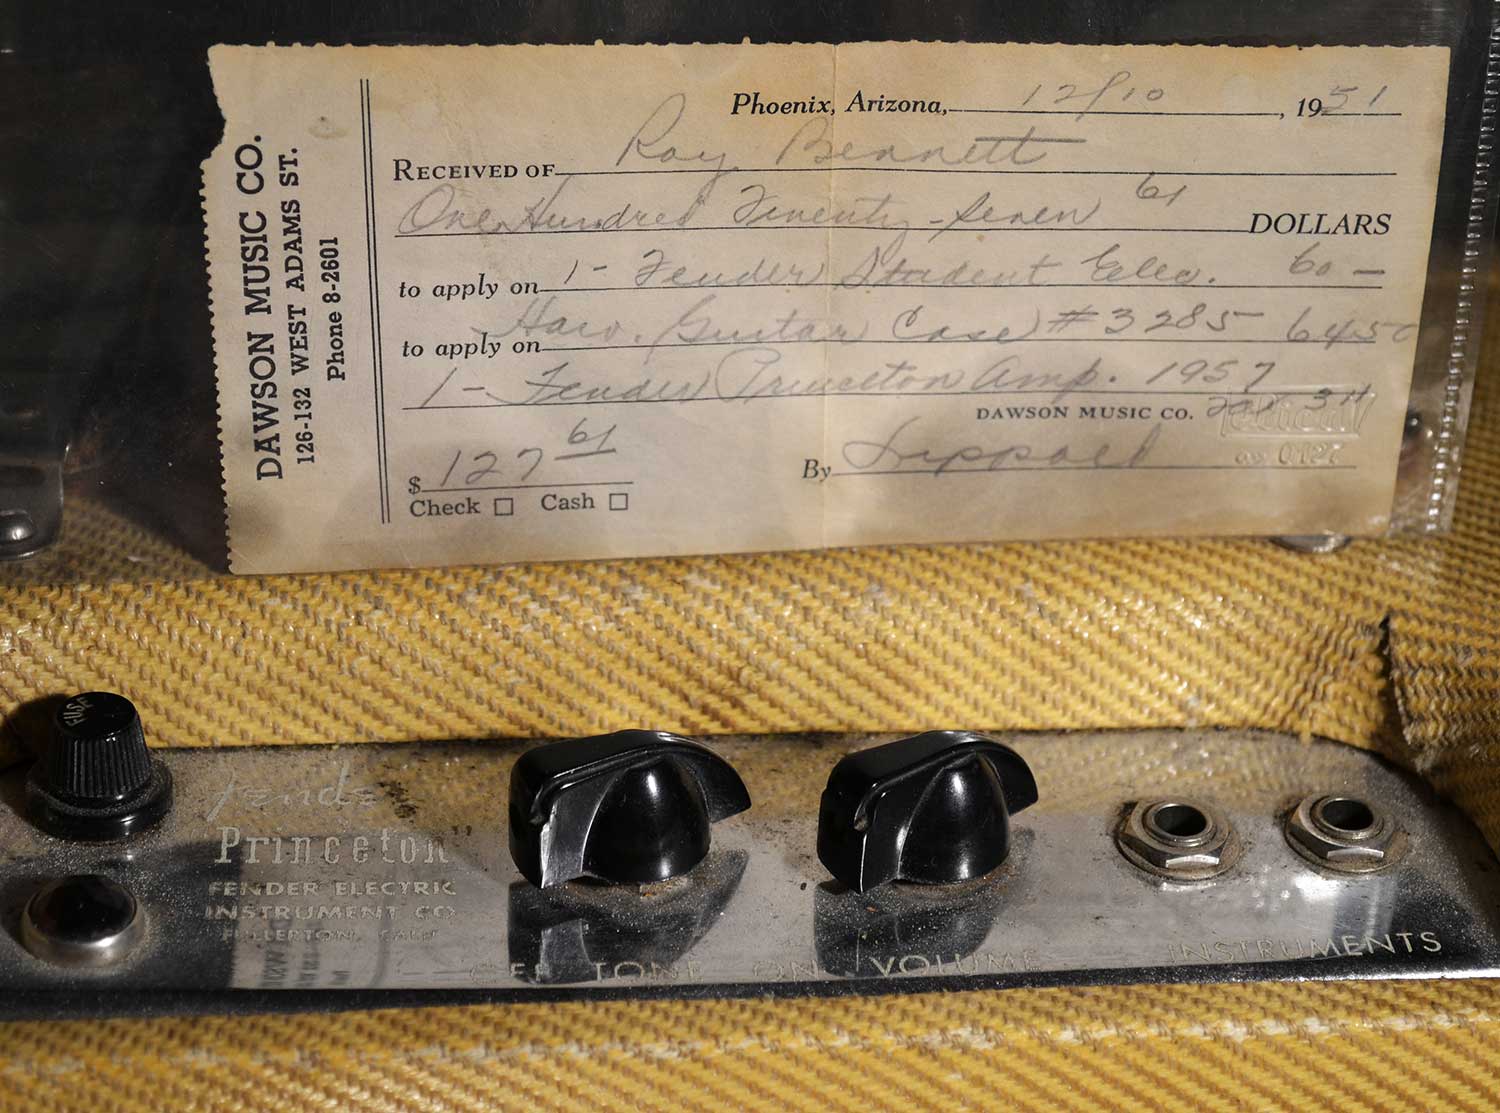 DAWSON MUSIC CO.
126-132 WEST ADAMS ST.
Phone 8-2601
Phoenix, Arizona, 12/10, 1951
RECEIVED OF Roy Bennett
One Hundred Twenty-seven 61 DOLLARS
to apply on 1- Fender Student Elec. 60 -
to apply on Haw. Guitar Case #3285 64.50
1- Fender Princeton Amp. 1957
DAWSON MUSIC CO. 3 11
$ 127 61
By Lippard
Check ☐ Cash ☐
FUSE
Fender
Princeton
FENDER ELECTRIC
INSTRUMENT CO
FULLERTON, CALIF
OFF TONE ON VOLUME INSTRUMENTS